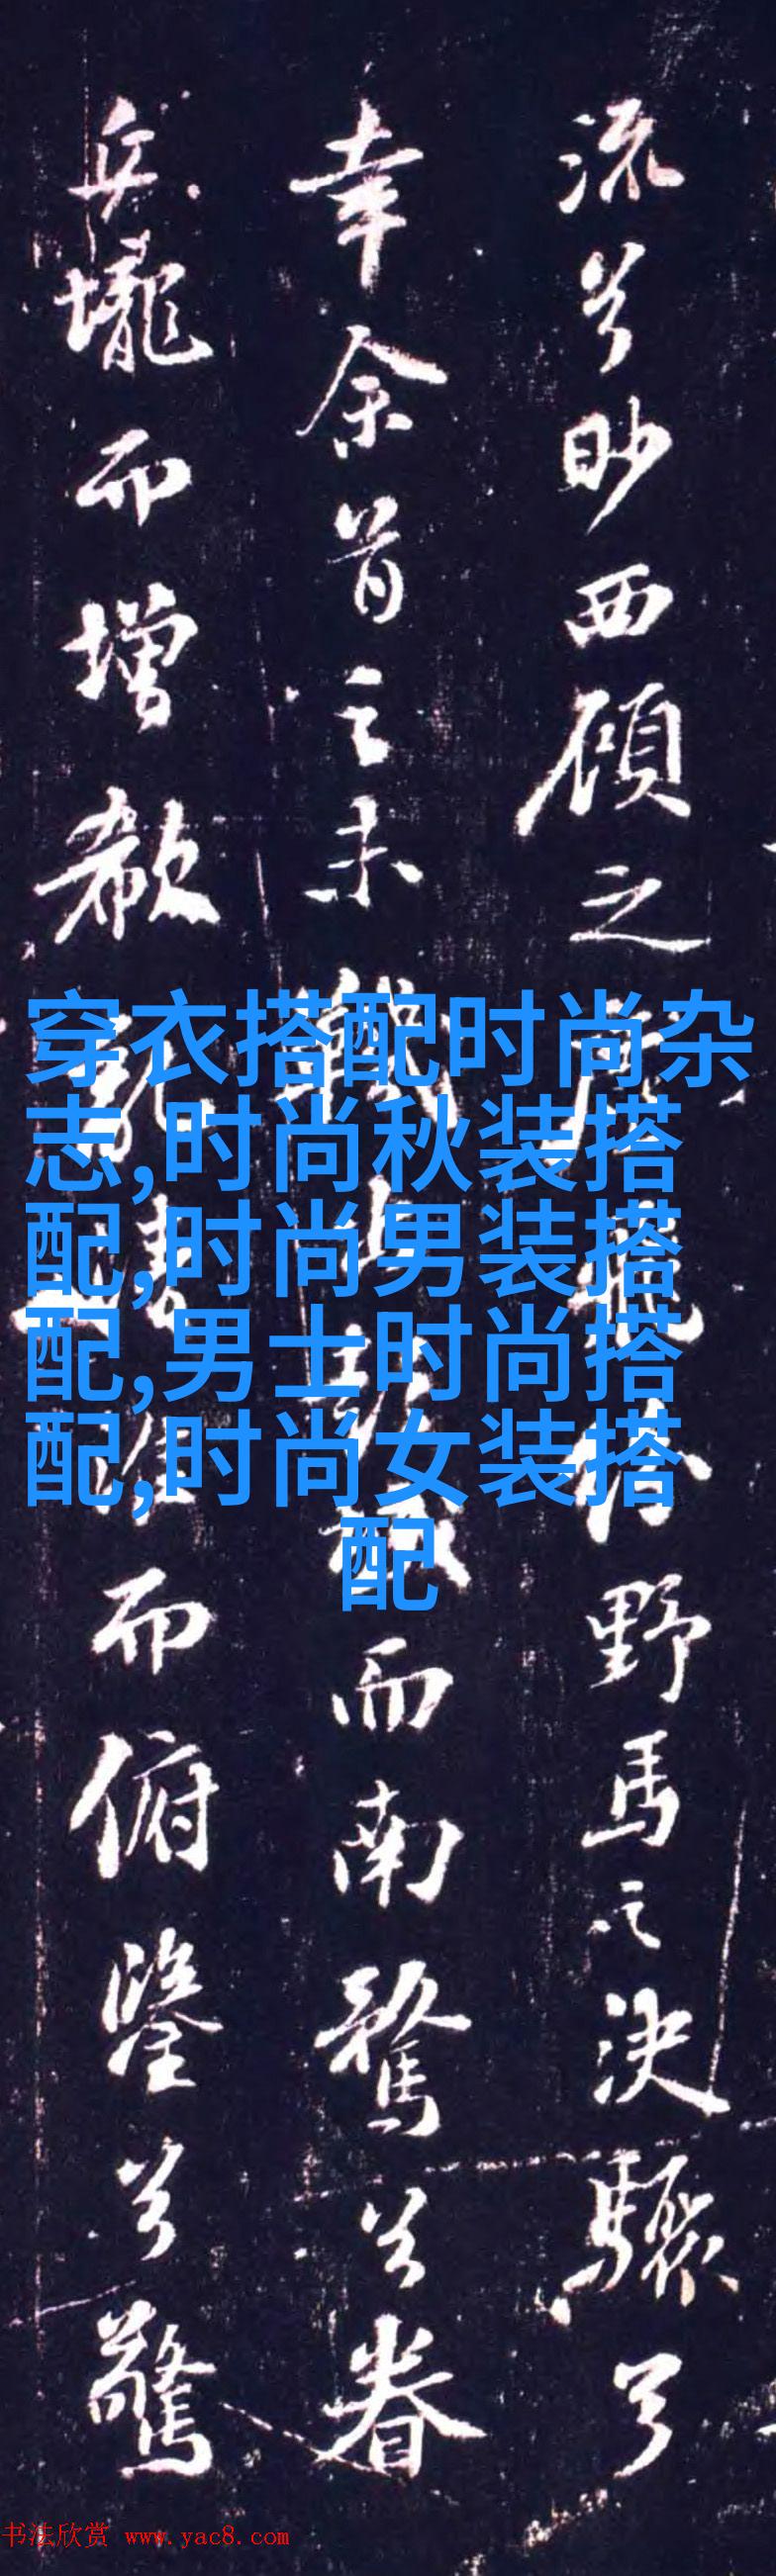 流兮眇西顧之紛野馬之決驟兮
幸余首之未而南騖兮眷
丘壠而增欷而俯鑒兮驚
穿衣搭配时尚杂
志,时尚秋装搭
配,时尚男装搭
配,男士时尚搭
配,时尚女装搭
配
书法欣赏 www.yac8.com